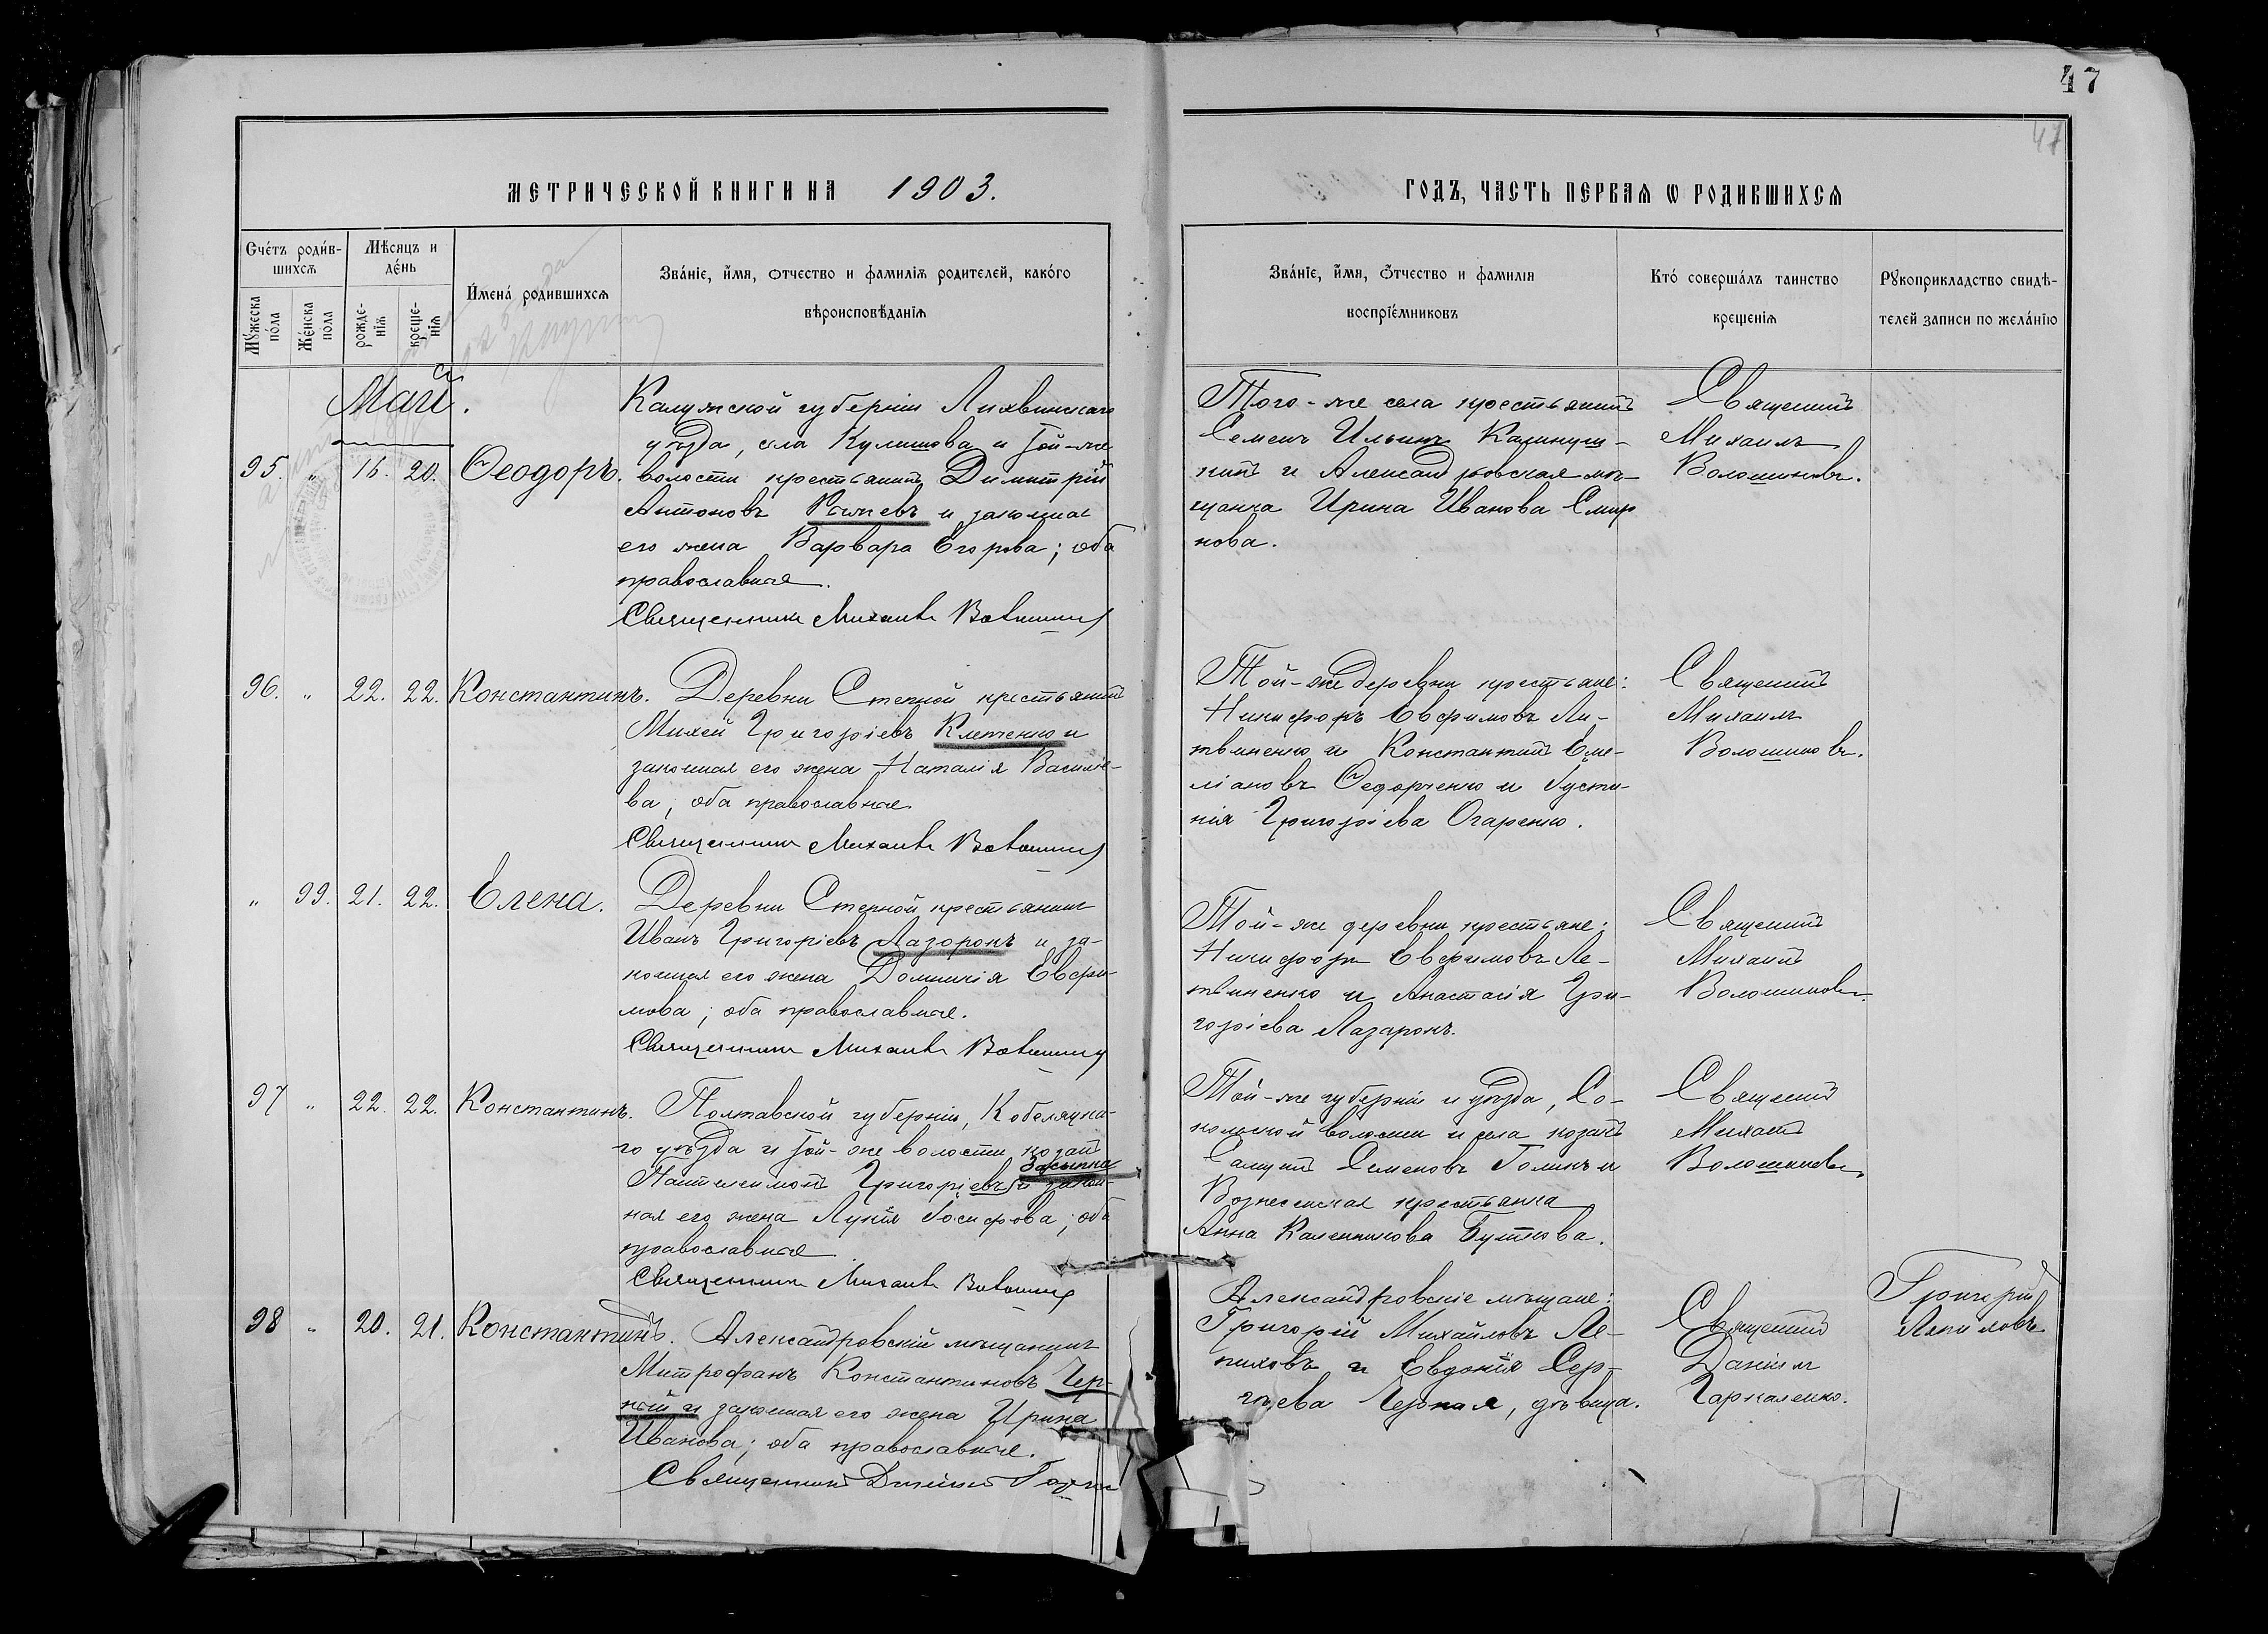 47
47
МЕТРИЧЕСКОЙ КНИГИ НА 1903.
ГОДЪ, ЧАСТЬ ПЕРВАЯ Ѡ РОДИВШИХСЯ
Сче́тъ роди́вшихся
Мѣсяцъ и де́нь
И́мена́ родившихся
Зва́нїе, и҆́мя, ѻтчество и фамилїя родителей, како́го вѣроисповѣ́данїя
Мꙋ́жеска по́ла
Же́нска пола
рожде-нїя
креще-нїя
Зва́нїе, и҆́мя, ѻ҆́тчество и фамилїя воспрїе́мниковъ
Кто́ совершáлъ таинство крещенїя
Рꙋкоприкладство свидѣ-телей записи по жела́нїю
Май.
95. " 16. 20. Ѳеодоръ.
Калужской губерніи Лихвинскаго
уѣзда, села Кулешова и той-же
волости крестьянинъ Димитрій
Антоновъ и законная
его жена Варвара Егорова; оба
православные.
Священникъ Михаилъ Волошинов
Того-же села крестьянинъ
Семенъ Ильинъ
и Александровская мѣ-
щанка Ирина Иванова Смир
нова.
Священникъ
Михаилъ
Волошиновъ.
96. " 22. 22. Константинъ.
Деревни Степной крестьянинъ
Михей Григоріевъ Клименко и
законная его жена Наталія Василіе-
ва; оба православные.
Священникъ Михаилъ Волошинов
Той-же деревни крестьяне:
Никифоръ Евфимовъ Ли-
твиненко и Константинъ Еме-
ліановъ Ѳедорченко и Іусти-
нія Григоріева Огаренко.
Священникъ
Михаилъ
Волошиновъ.
" 99. 21. 22. Елена.
Деревни Степной крестьянинъ
Иванъ Григоріевъ Лазоронъ и за-
конная его жена Домникія Евфи-
мова; оба православные.
Священникъ Михаилъ Волошинов
Той-же деревни крестьяне:
Никифоръ Евфимовъ Ли-
твиненко и Анастасія Гри-
горіева Лазаронъ.
Священникъ
Михаилъ
Волошиновъ.
97 " 22. 22. Константинъ.
Полтавской губерніи, Кобеляцка-
го уѣзда и той-же волости козакъ
Пантелеимонъ Григоріевъ Засыпка и закон-
ная его жена Лукія Іосифова; оба
православные.
Священникъ Михаилъ Волошинов
Той-же губерніи и уѣзда, Со-
кольской волости и села козакъ
Семеновъ Голикъ и
Вознесенская крестьянка
Анна Калинникова Буткова.
Священникъ
Михаилъ
Волошиновъ.
98 " 20. 21. Константинъ.
Александровскій мѣщанинъ
Митрофанъ Константиновъ Чер-
ный и законная его жена Ирина
Иванова; оба православные.
Священникъ Даніилъ
Александровскіе мѣщане:
Григорій Михайловъ Ле-
пиховъ и Евдокія Сер-
гѣева Черная, дѣвица.
Священникъ
Даніилъ
Гаркаленко.
Григорій